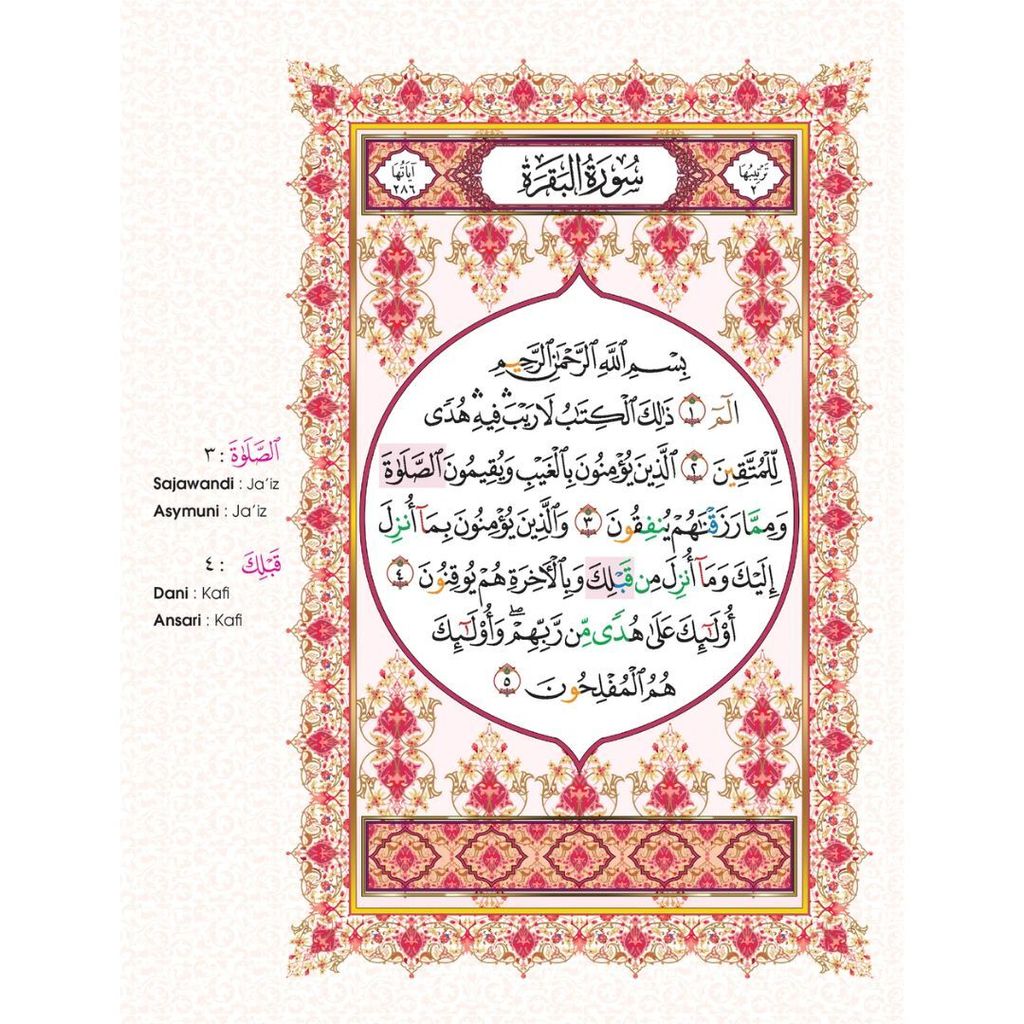 ترتيبها ٢
سُورَةُ الْبَقَرَةِ
آياتها ٢٨٦
بِسْمِ ٱللَّهِ ٱلرَّحْمَٰنِ ٱلرَّحِيمِ
الٓمٓ ١ ذَٰلِكَ ٱلْكِتَٰبُ لَا رَيْبَ ۛ فِيهِ ۛ هُدًى
لِّلْمُتَّقِينَ ٢ ٱلَّذِينَ يُؤْمِنُونَ بِٱلْغَيْبِ وَيُقِيمُونَ ٱلصَّلَوٰةَ
وَمِمَّا رَزَقْنَٰهُمْ يُنفِقُونَ ٣ وَٱلَّذِينَ يُؤْمِنُونَ بِمَآ أُنزِلَ
إِلَيْكَ وَمَآ أُنزِلَ مِن قَبْلِكَ وَبِٱلْأَخِرَةِ هُمْ يُوقِنُونَ ٤
أُو۟لَٰٓئِكَ عَلَىٰ هُدًى مِّن رَّبِّهِمْ ۖ وَأُو۟لَٰٓئِكَ
هُمُ ٱلْمُفْلِحُونَ ٥
ٱلصَّلَوٰةَ : ٣
Sajawandi : Ja’iz
Asymuni : Ja’iz
قَبْلِكَ : ٤
Dani : Kafi
Ansari : Kafi